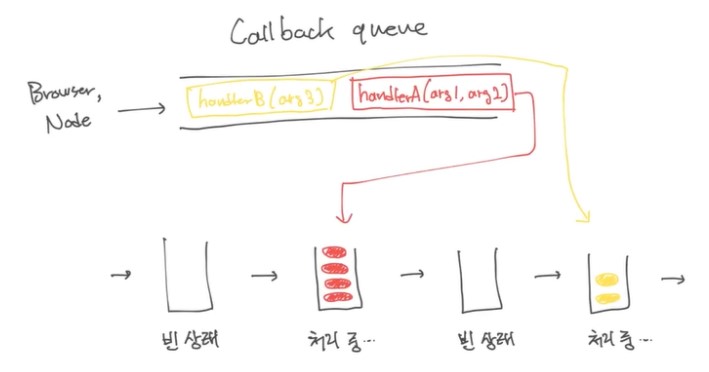 Callback queue
Browser,
Node
handlerB(arg3)
handlerA(arg1, arg2)
빈 상태
처리 중...
빈 상태
처리 중...